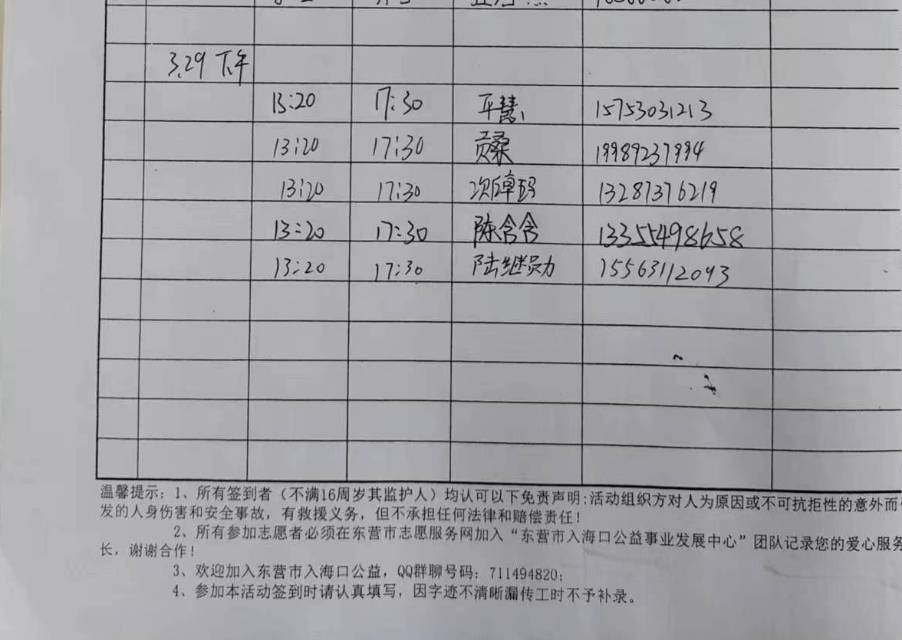 3.29 下午
13:20 17:30 平慧 15753031213
13:20 17:30 贡桑 19989237994
13:20 17:30 次卓玛 13287376219
13:20 17:30 陈含含 13355498658
13:20 17:30 陆继勋 15563112093
温馨提示：1、所有签到者（不满16周岁其监护人）均认可以下免责声明:活动组织方对人为原因或不可抗拒性的意外而
发的人身伤害和安全事故，有救援义务，但不承担任何法律和赔偿责任！
2、所有参加志愿者必须在东营市志愿服务网加入“东营市入海口公益事业发展中心”团队记录您的爱心服务
长，谢谢合作！
3、欢迎加入东营市入海口公益，QQ群聊号码：711494820；
4、参加本活动签到时请认真填写，因字迹不清晰漏传工时不予补录。